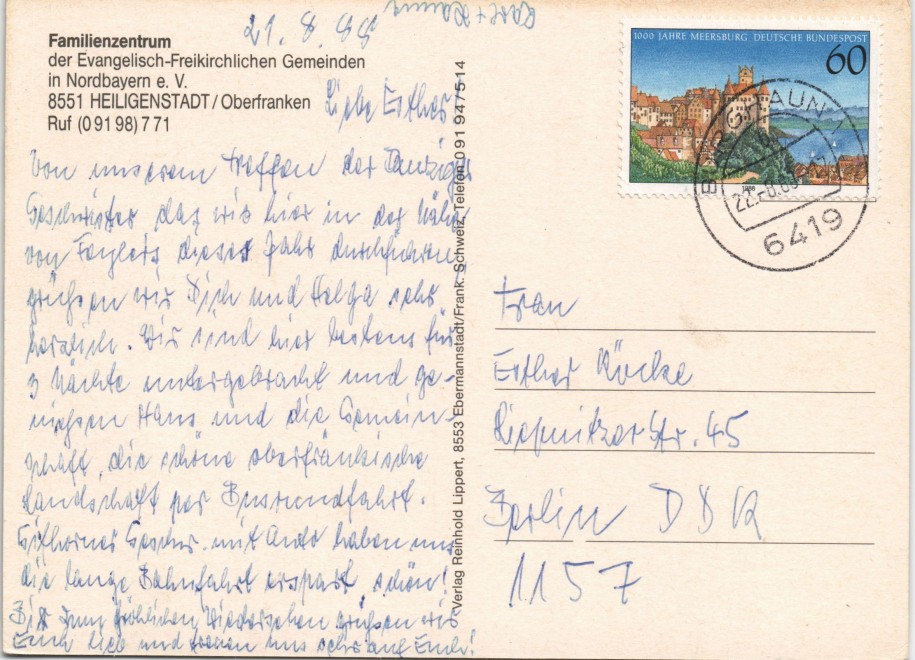 21. 8. 88
Familienzentrum
der Evangelisch-Freikirchlichen Gemeinden
in Nordbayern e. V.
8551 HEILIGENSTADT / Oberfranken
Ruf (0 91 98) 7 71
Liebe Esther
Von unserem Treffen der Danziger
Geschwister das wir hier in der Nähe
von dieses Jahr durchführen
grüßen wir Dich und Helga sehr
herzlich. Wir sind hier bestens für
3 Nächte untergebracht und ge-
niessen Haus und die Gemein-
schaft, die schöne oberfränkische
Landschaft per Busrundfahrt.
Geschw. mit Auto haben uns
die lange Bahnfahrt erspart, schön!
Bis zum fröhlichen Wiedersehen grüßen wir
Euch lieb und freuen uns sehr auf Euch!
Verlag Reinhold Lippert, 8553 Ebermannstadt/Frank. Schweiz, Telefon 0 91 94 / 5 14
1000 JAHRE MEERSBURG DEUTSCHE BUNDESPOST
60
1988
22.-8.88
6419
Frau
Esther
Liegnitzer Str. 45
Berlin DDR
1157